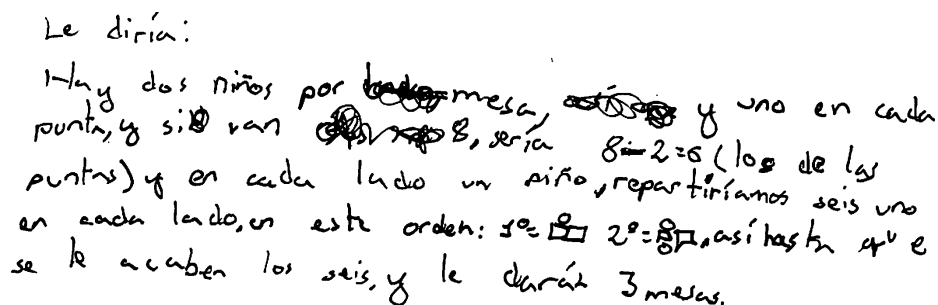 Le diría:
Hay dos niños por mesa, y uno en cada
punta, y si van 8, sería 8-2=6 (los de las
puntas) y en cada lado un niño, repartiríamos seis uno
en cada lado, en este orden: 1º= 2º= , así hasta que
se le acaben los seis, y le darán 3 mesas.